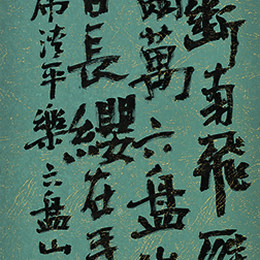 断南飛雁
萬六盘山
日長纓在手
席清平樂六盘山